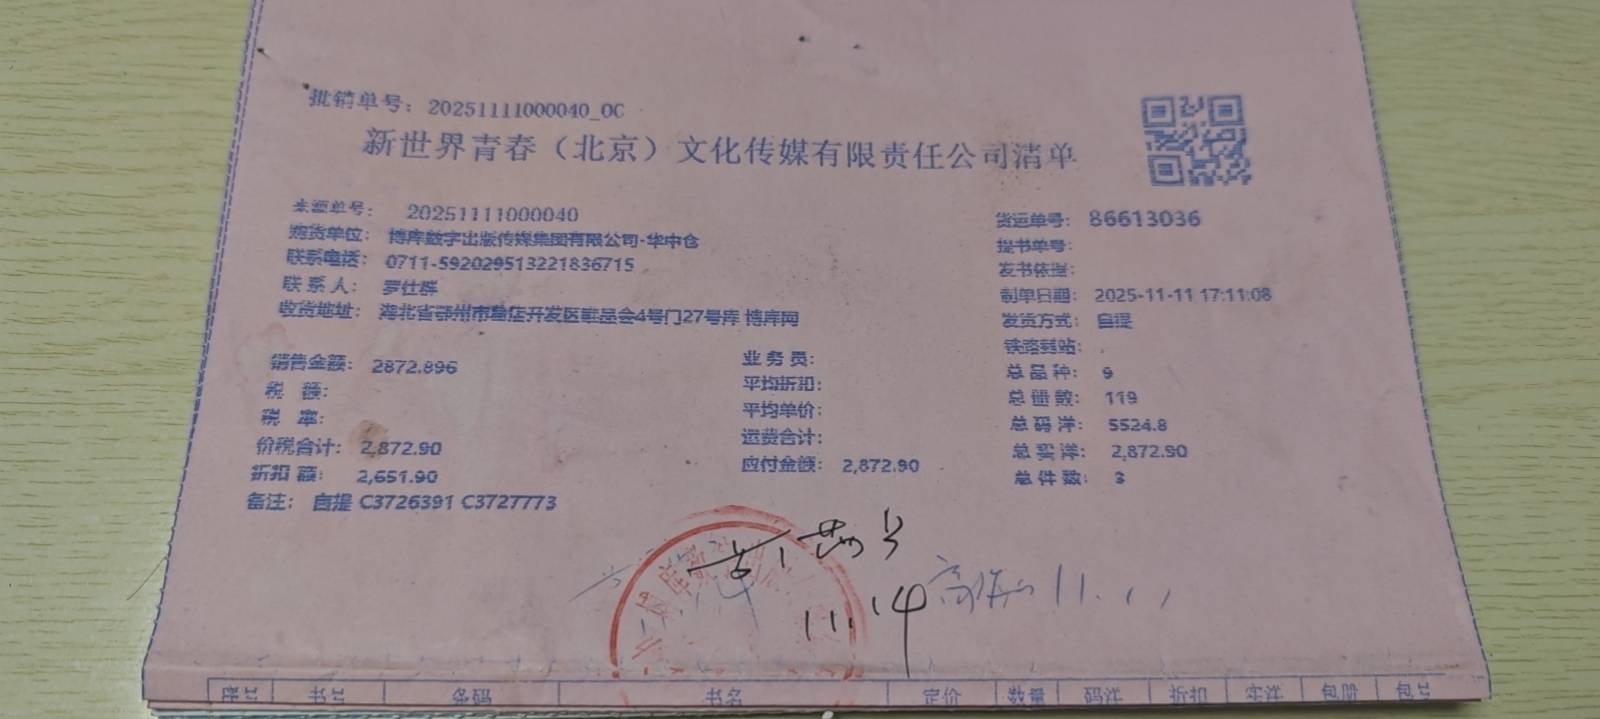 批销单号：20251111000040_OC
新世界青春（北京）文化传媒有限责任公司清单
来源单号： 20251111000040
货运单号： 86613036
购货单位： 博库数字出版传媒集团有限公司-华中仓
提书单号：
联系电话： 0711-592029513221836715
发书依据：
联系人： 罗仕群
制单日期： 2025-11-11 17:11:08
收货地址： 湖北省鄂州市葛店开发区唯品会4号门27号库 博库网
发货方式： 自提
铁路到站：
销售金额： 2872.896
业务员：
总品种： 9
税 额：
平均折扣：
总册数： 119
税 率：
平均单价：
总码洋： 5524.8
价税合计： 2,872.90
运费合计：
总实洋： 2,872.90
折扣额： 2,651.90
应付金额： 2,872.90
总件数： 3
备注： 自提 C3726391 C3727773
11.14
书名 定价 数量 码洋 折扣 实洋